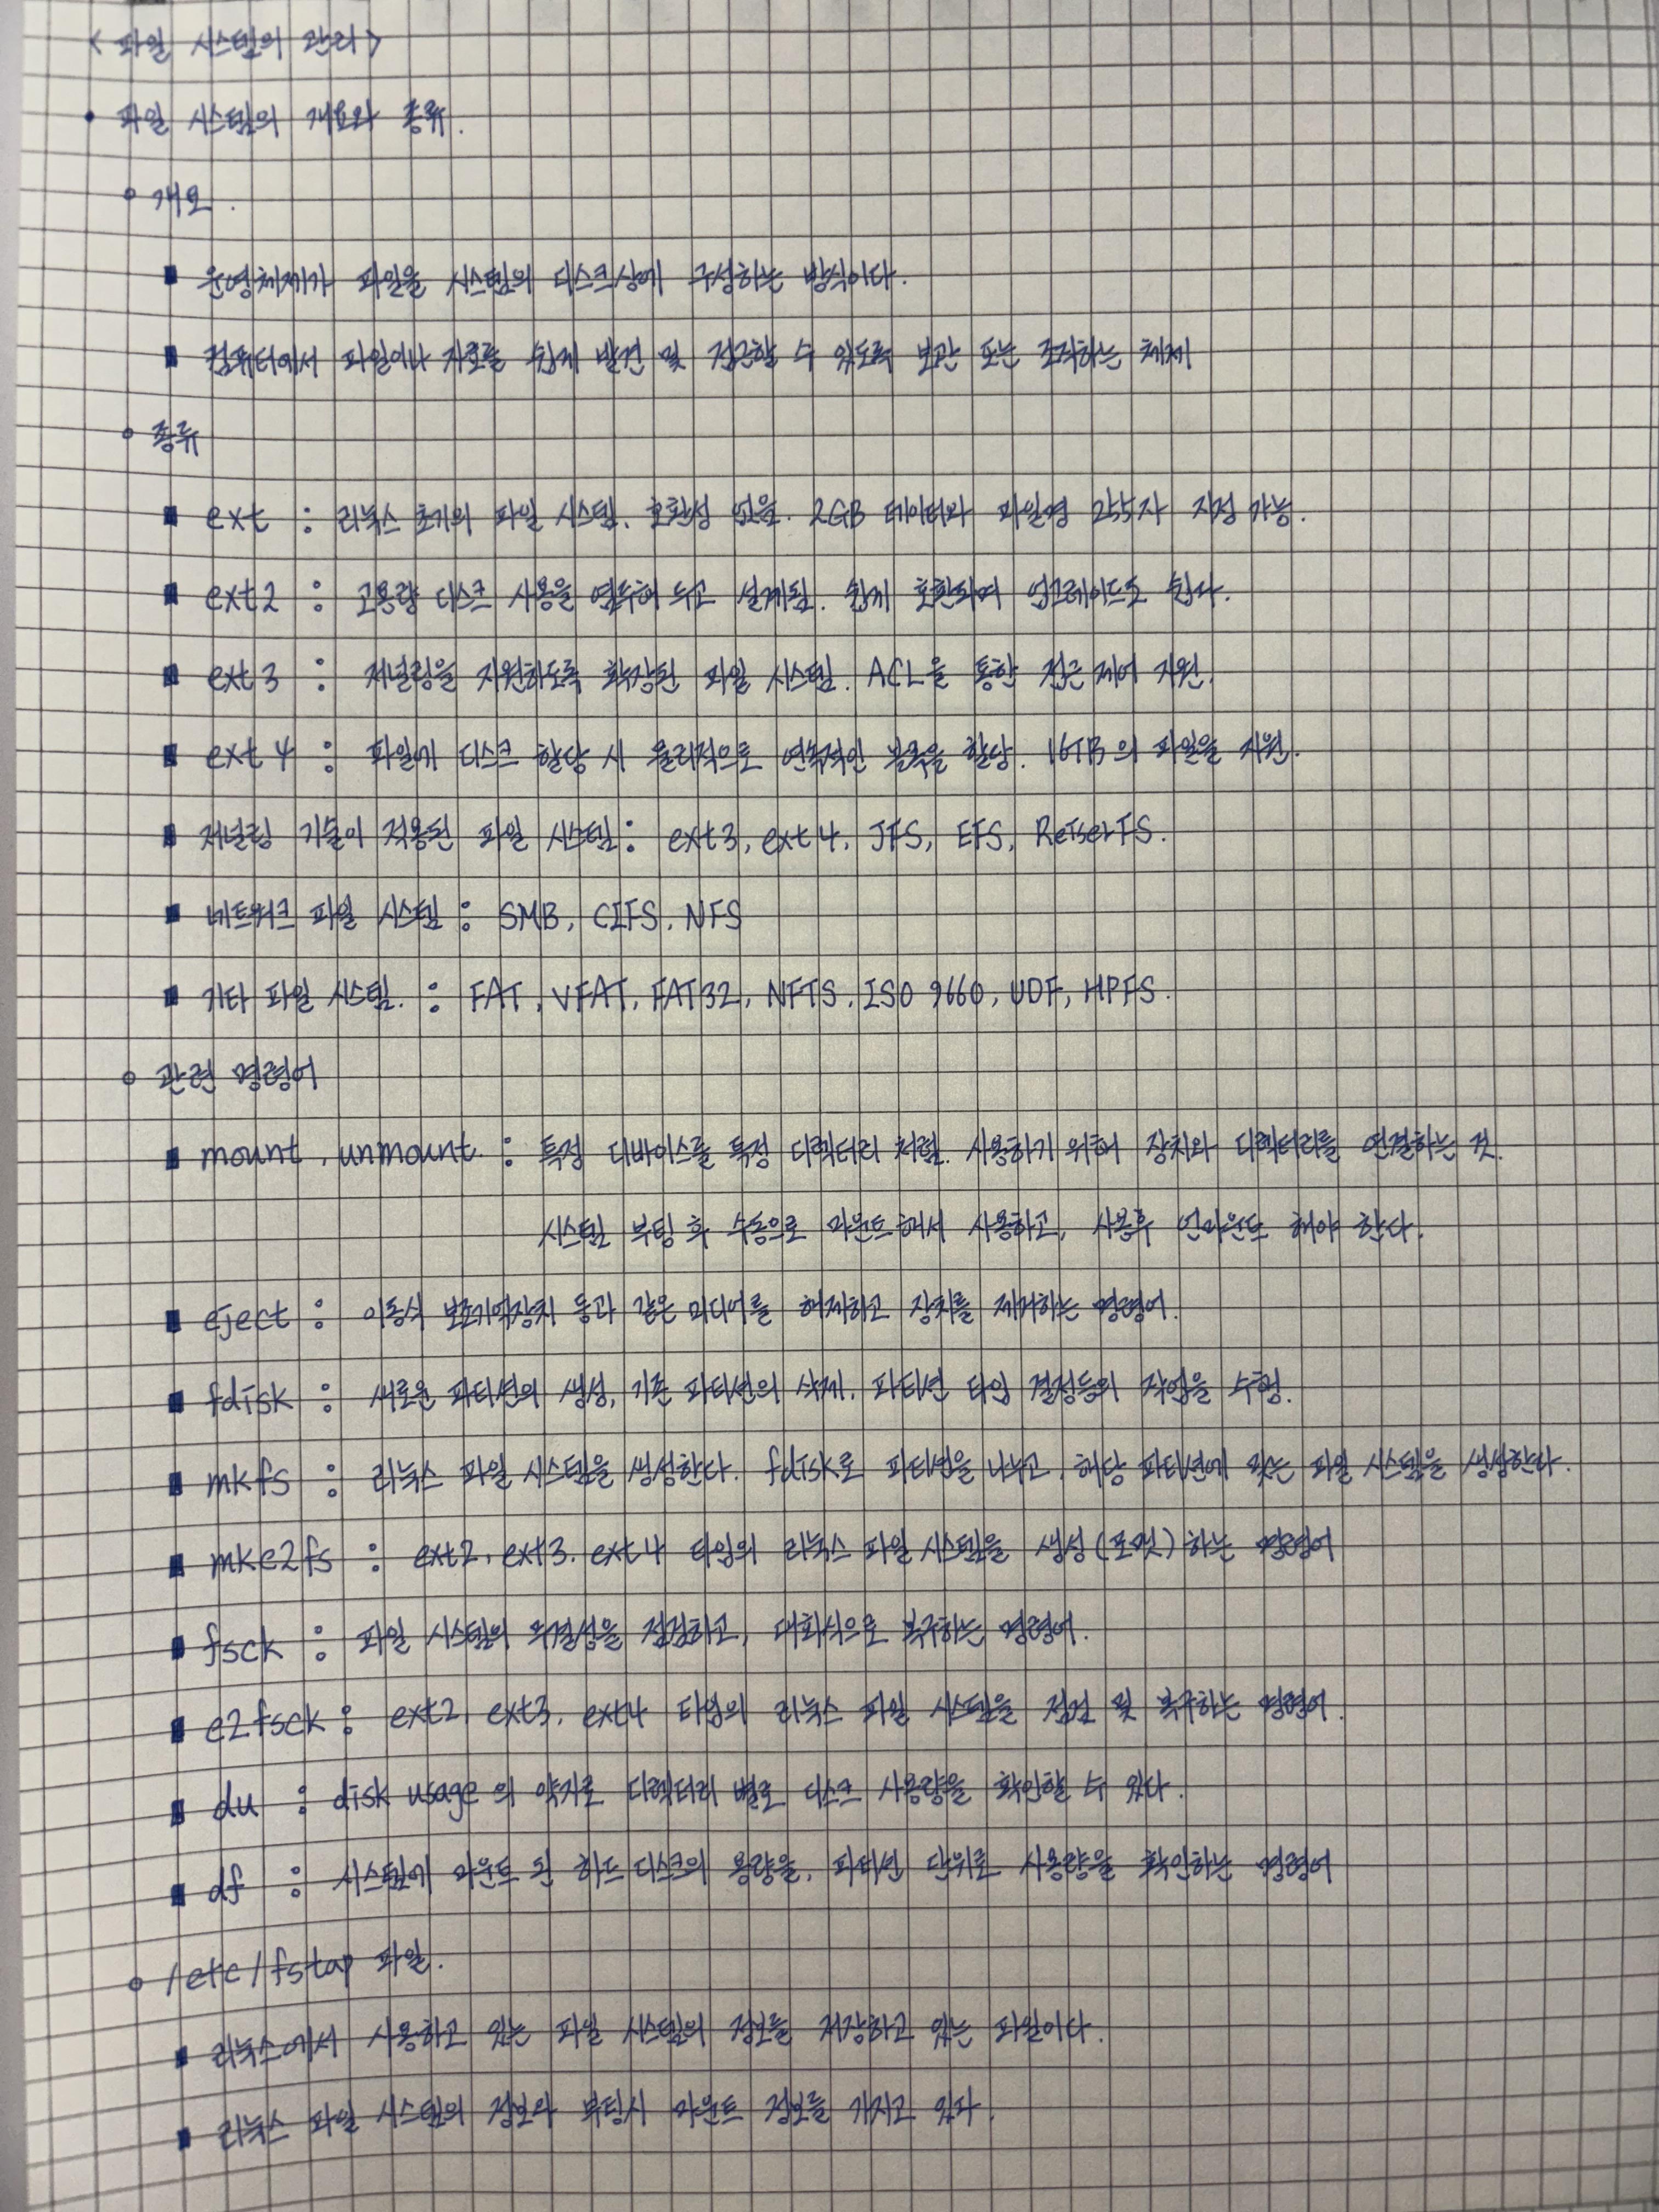 < 파일 시스템의 관리 >
• 파일 시스템의 개요와 종류.
◦ 개요.
▪ 운영체제가 파일을 시스템의 디스크상에 구성하는 방식이다.
▪ 컴퓨터에서 파일이나 자료를 쉽게 발견 및 접근할 수 있도록 보관 또는 조직하는 체제
◦ 종류
▪ ext : 리눅스 초기의 파일 시스템. 호환성 없음. 2GB 데이터와 파일명 255자 지정 가능.
▪ ext2 : 고용량 디스크 사용을 염두해 두고 설계됨. 쉽게 호환되며 업그레이드도 쉽다.
▪ ext3 : 저널링을 지원하도록 확장된 파일 시스템. ACL을 통한 접근 제어 지원.
▪ ext4 : 파일에 디스크 할당 시 물리적으로 연속적인 블록을 할당. 16TB의 파일을 지원.
▪ 저널링 기술이 적용된 파일 시스템 : ext3, ext4, JFS, EFS, ReiserFS.
▪ 네트워크 파일 시스템 : SMB, CIFS, NFS
▪ 기타 파일 시스템. : FAT, VFAT, FAT32, NFTS, ISO 9660, UDF, HPFS.
◦ 관련 명령어
▪ mount, unmount : 특정 디바이스를 특정 디렉터리 처럼 사용하기 위해 장치와 디렉터리를 연결하는 것.
시스템 부팅 후 수동으로 마운트해서 사용하고, 사용후 언마운트 해야 한다.
▪ eject : 이동식 보조기억장치 등과 같은 미디어를 해제하고 장치를 제거하는 명령어.
▪ fdisk : 새로운 파티션의 생성, 기존 파티션의 삭제, 파티션 타입 결정등의 작업을 수행.
▪ mkfs : 리눅스 파일 시스템을 생성한다. fdisk로 파티션을 나누고, 해당 파티션에 맞는 파일 시스템을 생성한다.
▪ mke2fs : ext2, ext3, ext4 타입의 리눅스 파일 시스템을 생성(포맷)하는 명령어
▪ fsck : 파일 시스템의 무결성을 점검하고, 대화식으로 복구하는 명령어.
▪ e2fsck : ext2, ext3, ext4 타입의 리눅스 파일 시스템을 점검 및 복구하는 명령어.
▪ du : disk usage의 약자로 디렉터리 별로 디스크 사용량을 확인할 수 있다.
▪ df : 시스템에 마운트 된 하드 디스크의 용량을, 파티션 단위로 사용량을 확인하는 명령어
◦ /etc/fstap 파일.
▪ 리눅스에서 사용하고 있는 파일 시스템의 정보를 저장하고 있는 파일이다.
▪ 리눅스 파일 시스템의 정보와 부팅시 마운트 정보를 가지고 있다.